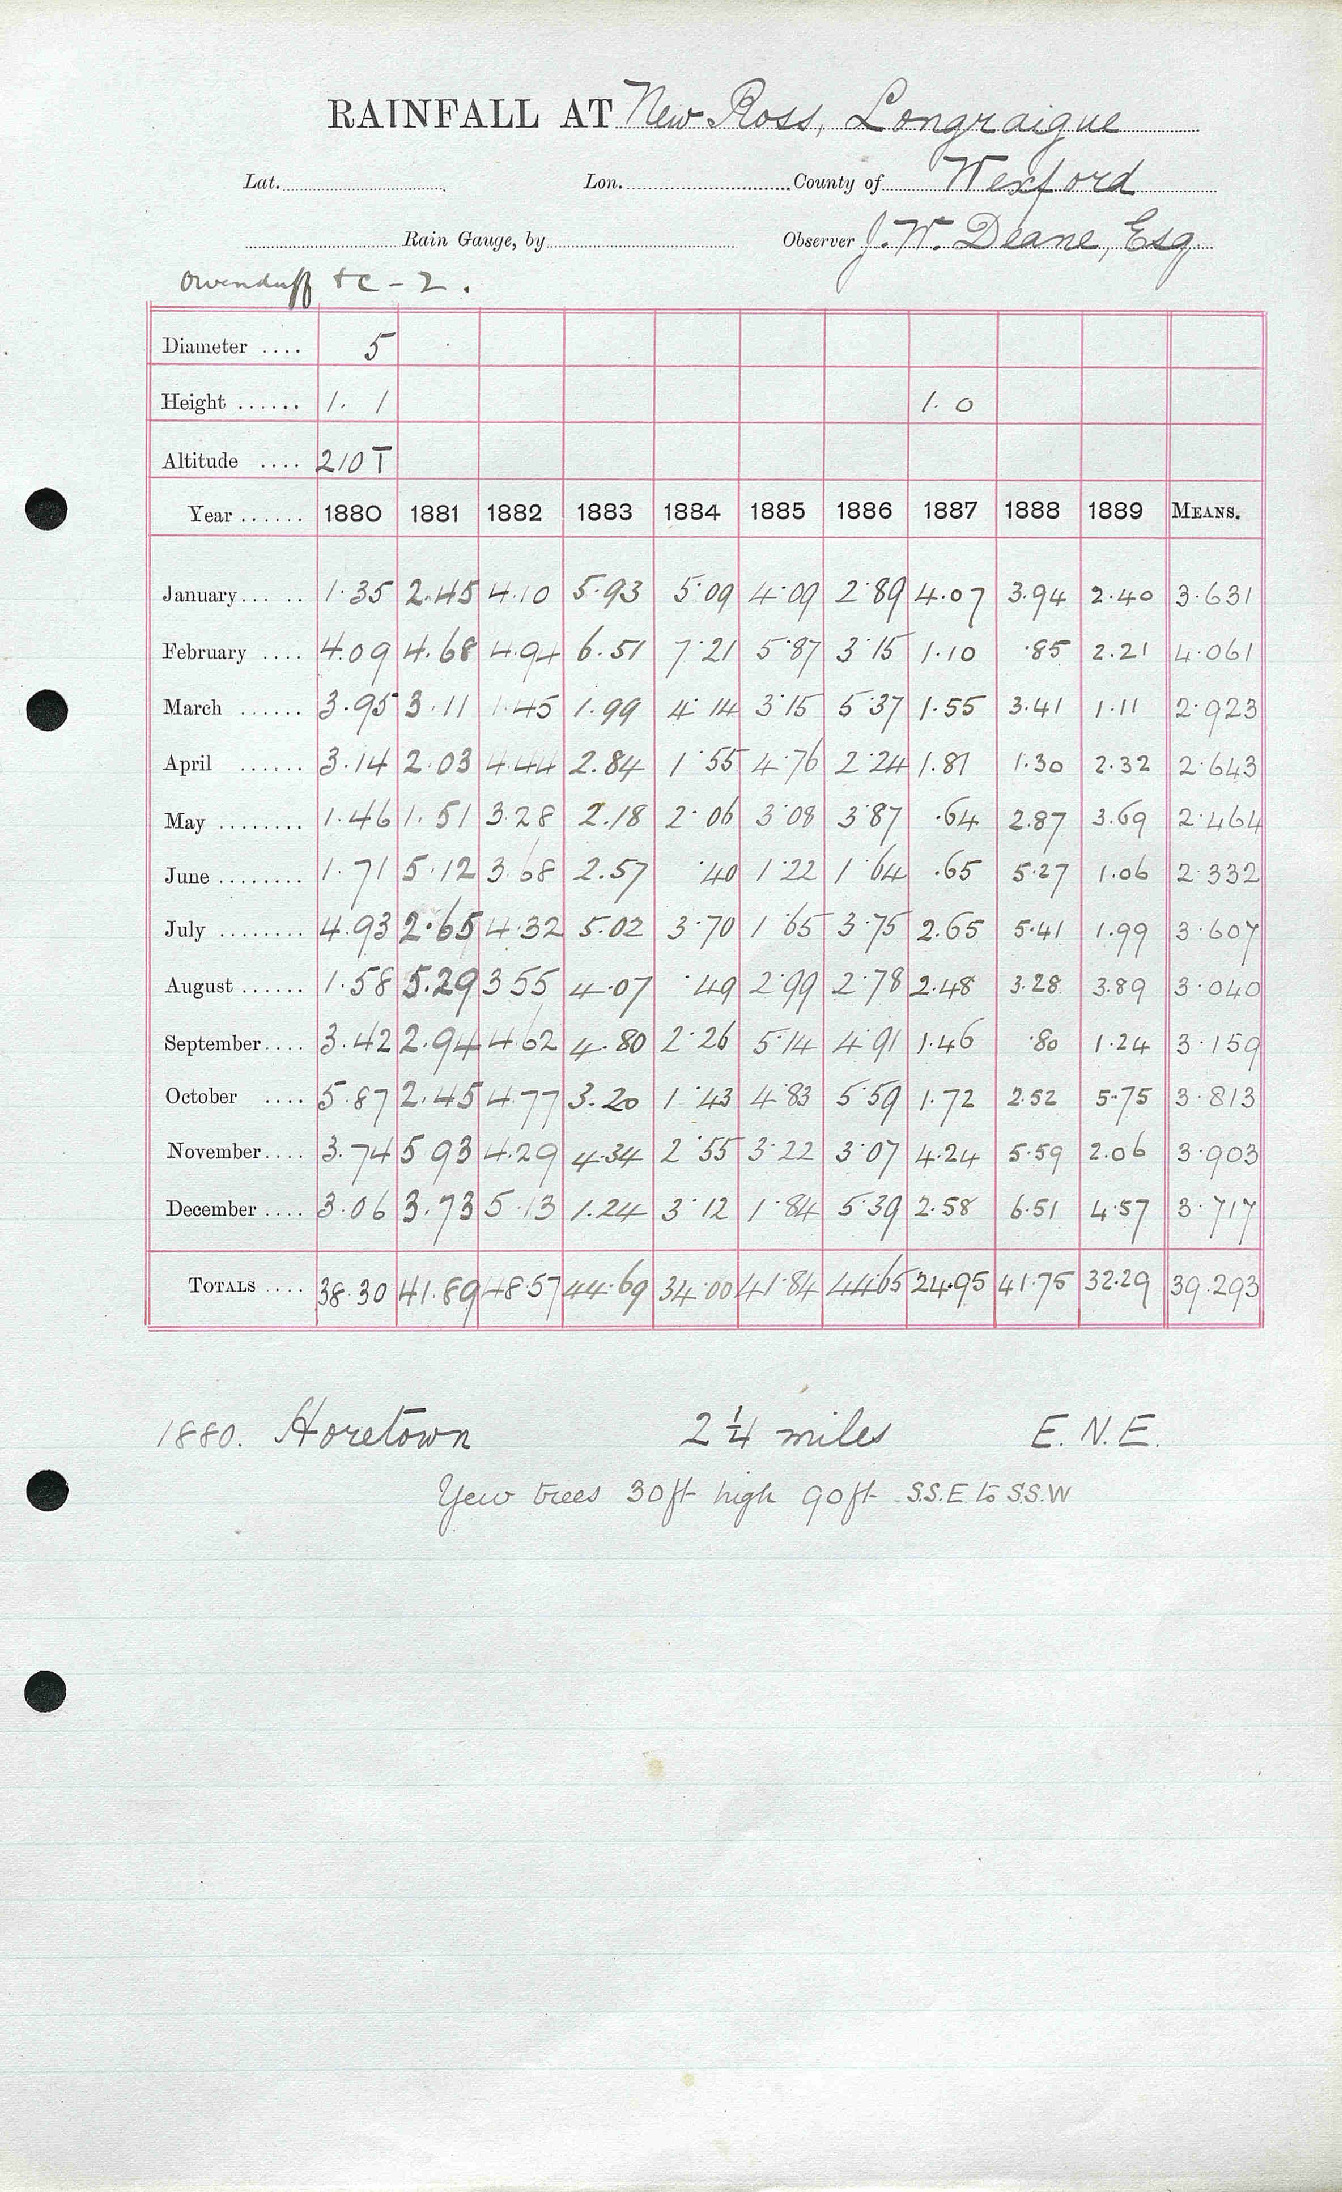 RAINFALL AT New Ross, Longraigue
Lat. Lon. County of Wexford
Rain Gauge, by Observer J. W. Deane, Esq.
Owenduff &c - 2.
Diameter .... 5
Height ...... 1. 1 1. 0
Altitude .... 210 T
Year ...... 1880 1881 1882 1883 1884 1885 1886 1887 1888 1889 MEANS.
January ... .. 1.35 2.45 4.10 5.93 5.09 4.09 2.89 4.07 3.94 2.40 3.631
February .... 4.09 4.68 4.94 6.51 7.21 5.87 3.15 1.10 .85 2.21 4.061
March ...... 3.95 3.11 1.45 1.99 4.14 3.15 5.37 1.55 3.41 1.11 2.923
April ...... 3.14 2.03 4.44 2.84 1.55 4.76 2.24 1.81 1.30 2.32 2.643
May ........ 1.46 1.51 3.28 2.18 2.06 3.08 3.87 .64 2.87 3.69 2.464
June ........ 1.71 5.12 3.68 2.57 .40 1.22 1.64 .65 5.27 1.06 2.332
July ........ 4.93 2.65 4.32 5.02 3.70 1.65 3.75 2.65 5.41 1.99 3.607
August ...... 1.58 5.29 3.55 4.07 .49 2.99 2.78 2.48 3.28 3.89 3.040
September .... 3.42 2.94 4.62 4.80 2.26 5.14 4.91 1.46 .80 1.24 3.159
October .... 5.87 2.45 4.77 3.20 1.43 4.83 5.59 1.72 2.52 5.75 3.813
November .... 3.74 5.93 4.29 4.34 2.55 3.22 3.07 4.24 5.59 2.06 3.903
December .... 3.06 3.73 5.13 1.24 3.12 1.84 5.39 2.58 6.51 4.57 3.717
TOTALS .... 38.30 41.89 48.57 44.69 34.00 41.84 44.65 24.95 41.75 32.29 39.293
1880. Horetown 2 1/4 miles E. N. E.
Yew trees 30ft high 90ft S.S.E to S.S.W